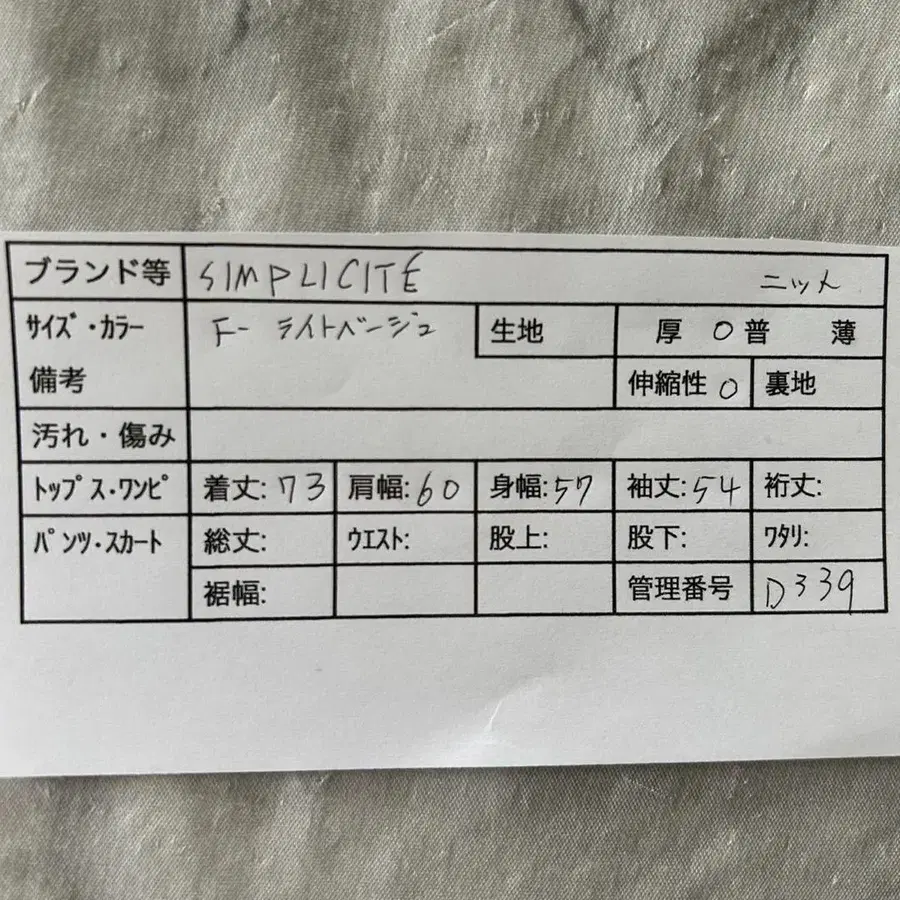 ブランド等 SIMPLICITE ニット
サイズ・カラー F- ライトベージュ 生地 厚 ○普 薄
備考 伸縮性 ○ 裏地
汚れ・傷み
ﾄｯﾌﾟｽ・ﾜﾝﾋﾟ 着丈:73 肩幅:60 身幅:57 袖丈:54 裄丈:
ﾊﾟﾝﾂ・ｽｶｰﾄ 総丈: ｳｴｽﾄ: 股上: 股下: ﾜﾀﾘ:
裾幅: 管理番号 D339